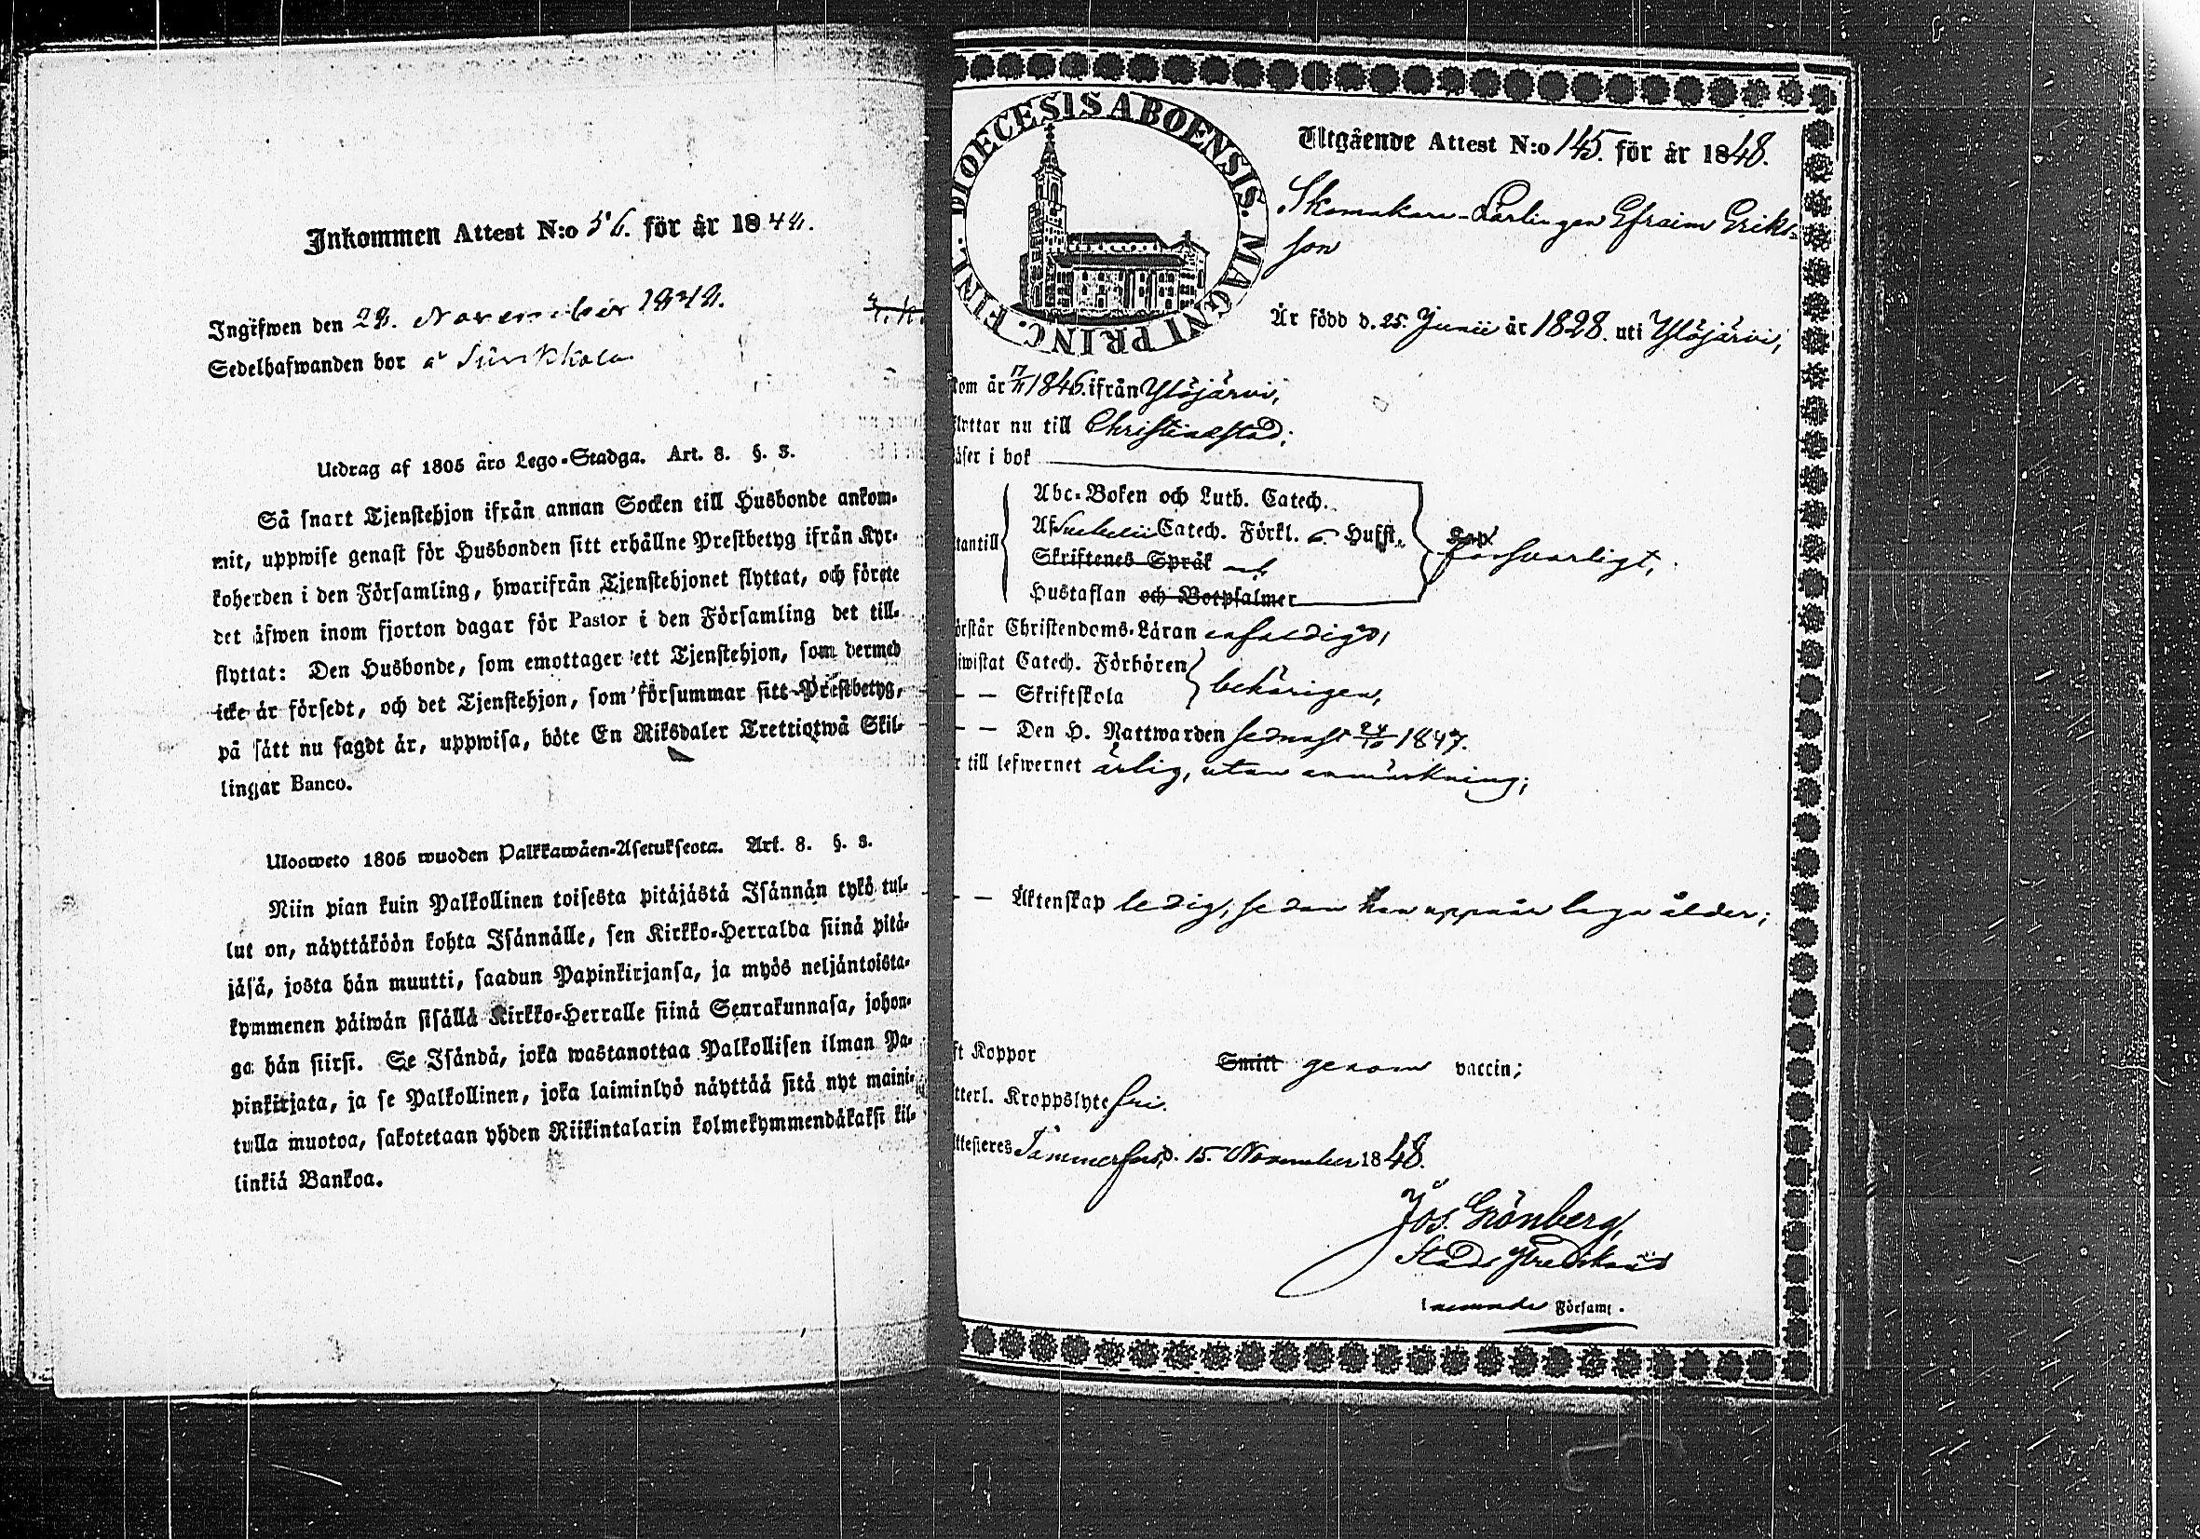 Inkommen Attest N:o 56. för år 1848.
Ingifwen den 28. November 1848.
Sedelhafwanden bor å
Utdrag af 1805 års Lego-Stadga. Art. 8. §. 3.
Så snart Tjenstehjon ifrån annan Socken till Husbonde ankom-
mit, uppwise genast för Husbonden sitt erhållne Prestbetyg ifrån Kyr-
koherden i den Församling, hwarifrån Tjenstehjonet flyttat, och förete
det äfwen inom fjorton dagar för Pastor i den Församling det till-
flyttat: Den Husbonde, som emottager ett Tjenstehjon, som dermed
icke är försedt, och det Tjenstehjon, som försummar sitt Prestbetyg,
på sätt nu sagdt är, uppwisa, böte En Riksdaler Trettiotwå Skil-
lingar Banco.
Ulosweto 1805 wuoden Palkkawäen-Asetuksesta. Art. 8. §. 3.
Niin pian kuin Palkollinen toisesta pitäjästä Isännän tykö tul-
lut on, näyttäköön kohta Isännälle, sen Kirkko-Herralda siinä pitä-
jäsä, josta hän muutti, saadun Papinkirjansa, ja myös neljäntoista-
kymmenen päiwän sisällä Kirkko-Herralle siinä Seurakunnasa, johon-
ga hän siirsi. Se Isändä, joka wastanottaa Palkollisen ilman Pa-
pinkirjata, ja se Palkollinen, joka laiminlyö näyttää sitä nyt maini-
tulla muotoa, sakotetaan yhden Riikintalarin kolmekymmendäkaksi kil-
linkiä Bankoa.
DIOECESIS ABOENSIS. MAGNI PRINC. FINL.
Utgående Attest N:o 145. för år 1848.
Skomakare-Lärlingen Efraim Eriks-
son
Är född d. 25. Junii år 1828. uti Ylöjärvi,
kom år 1846. ifrån Ylöjärvi,
flyttar nu till Christinestad;
läser i bok
Abc-Boken och Luth. Catech.
Af Svebelii Catech. Förkl. 6. Hufst.
utantill Skriftenes Språk och försvarligt,
Hustaflan och Botpsalmer
förstår Christendoms-Läran enfaldigt,
biwistat Catech. Förhören
— — Skriftskola behörigen,
— — Den H. Nattwarden sednast 24/10 1847.
är till lefwernet ärlig, utan anmärkning;
— — Äktenskap ledig, sedan han uppnår laga ålder;
haft Koppor Smitt genom vaccin;
ytterl. Kroppslyte fri.
Attesteres Tammerfors, d. 15. November 1848.
Jos. Grönberg,
Församl.